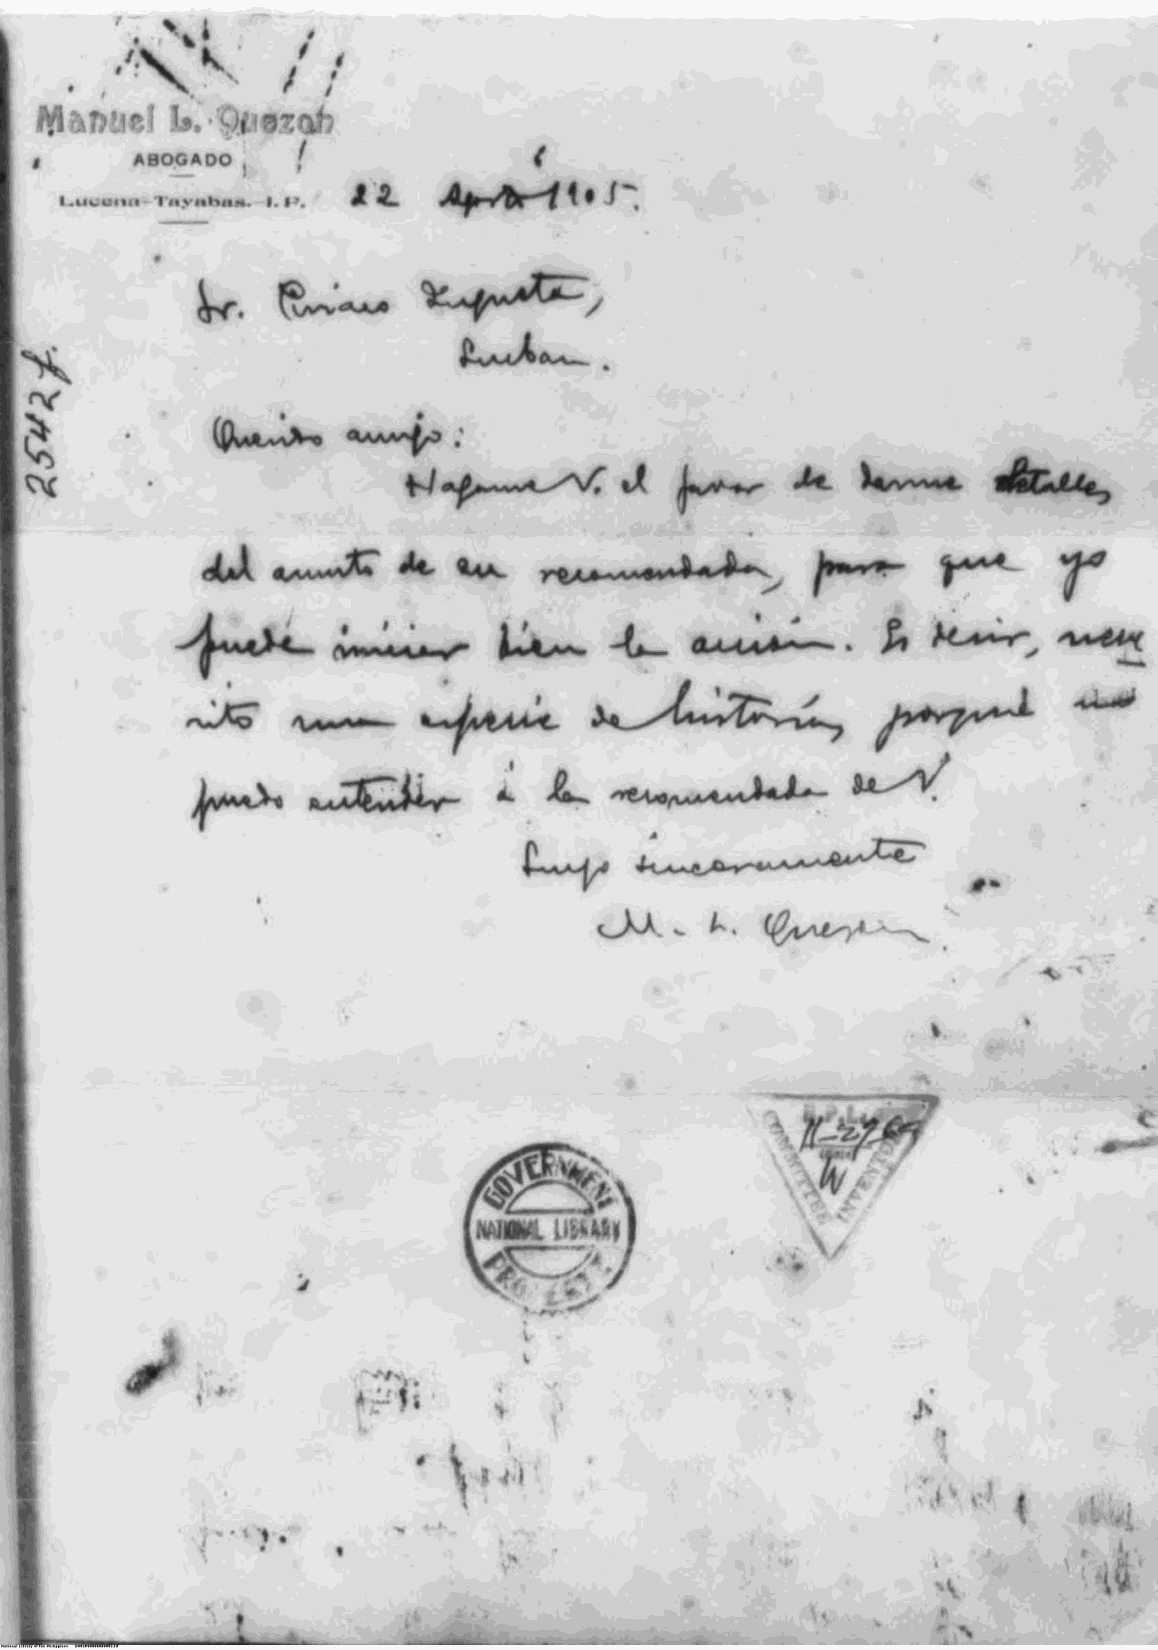 Manuel L. Quezon
ABOGADO
Lucena-Tayabas.-I. P.
22 April 1905.
Sr. Ciriaco Zugasta,
Lucban.
2542 f.
Querido amigo:
Hagame V. el favor de darme detalles
del asunto de su recomendada, para que yo
puede iniciar bien la acción. Es decir, nece
sito una especie de historia, porque no
puedo entender á la recomendada de V.
Suyo sinceramente
M. L. Quezon
GOVERNMENT
NATIONAL LIBRARY
PROPERTY
11-29-65
COMMITTEE
INVENTORY